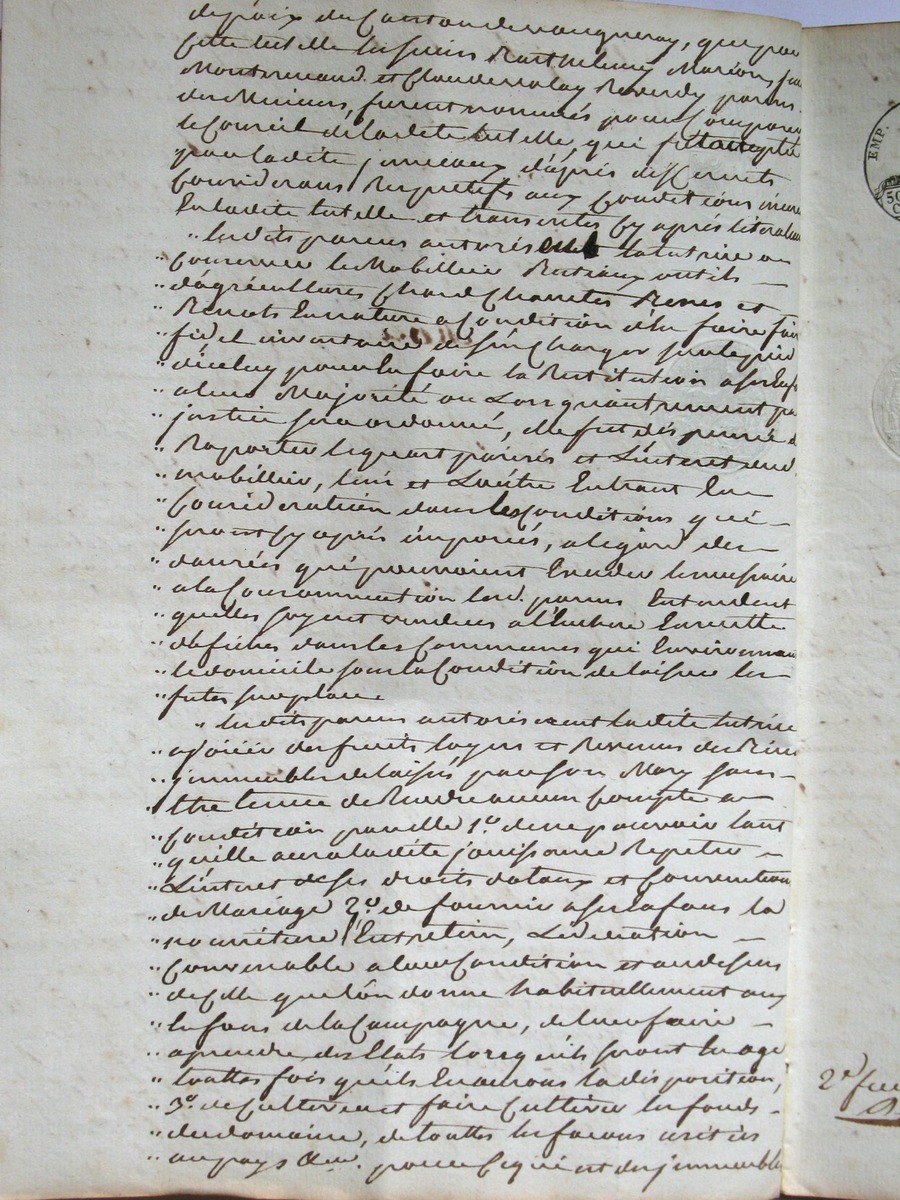 de paix du Canton de vaugneray, que pour
cette tutelle les sieurs Barthelemy Marion, 
Montremand et Claude Nolay Reverdy parens
des Mineurs, furent nommés pour composer
le Conseil de ladite tutelle, qui fut accepté
par ladite d'après differents
Considerans Respectifs aux Conditions 
En ladite tutelle et transcrites cy après 
" lesdits parens autorisent la tutrice a
" Conserver le Mobillier Bestiaux outils
" d'agricultures Chard Charettes et
" En nature a Condition d'En faire faire
" fidel inventaire de s'En Charger sur le pied
" d'iceluy pour En faire la Restitution a ses Enfans
" a leur Majorité ou Lorsqu'autrement par
" justice sera ordonné, elle fut dispensée de
" Raporter le quart parisis et L'interet dud.
" mobillier, l'un et L'autre Entrant En
" Consideration dans les Conditions qui
" seront cy après imposées, a l'egard des
" danrées qui pourroient Exceder le necessaire
" a la Consommation lesd. parens Entendent
" quelles soyent vendues a l'Enchere Ensuitte
" d'afiches dans les Communes qui Environnent
" le domicile sous la Condition de laisser les
" futes sur place
" lesdits parens autorisèrent ladite tutrice
" a jouir des fruits loyers et Revenus des Biens
" immeubles delaissés par son Mary sans
" Etre tenue de Rendre aucun Compte a
" Condition par elle 1º de ne pouvoir tant
" qu'elle aura ladite jouissance Repeter
" L'interet de ses droits dotaux et Conventions
" de Mariage 2º de fournir a ses Enfans la
" nourriture l'Entretien, L'education
" Convenable a leur Condition et au dessus
" de Celle que l'on donne habituellement aux
" Enfans de la Campagne, de leur faire
" aprendre des Etats lorsqu'ils seront En age
" touttes fois qu'ils En auront la disposition,
" 3º de Cultiver et faire Cultiver les fonds
" du domaine, de touttes les facons usitées
" au pays &a. pour ce qui est des immeubles
EMP.
50
2e